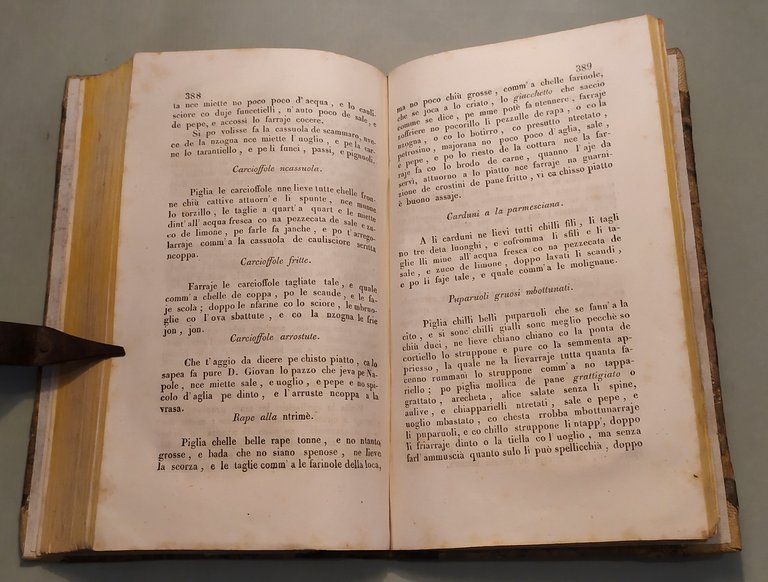 388
ta nce miette no poco poco d'acqua, e lo cauli-
sciore co duje funcetielli, n'auto poco de sale, e
de pepe, e accossì lo farraje cocere.
Si po volisse fa la cassuola de scammaro, nve-
ce de la nzogna nce miette l'uoglio, e pe la car-
ne lo tarantiello, e pe li funci, passi, e pignuoli.
Carcioffole ncassuola.
Piglia le carcioffole nne lieve tutte chelle fron-
ne chiù cattive attuorn'e li spunte, nce munne
lo torzillo, le taglie a quart'a quart'e le miette
dint'all'acqua fresca co na pezzecata de sale e zu-
co de limone, pe farle fa janche, e po t'arrego-
larraje comm'a la cassuola de caulisciore scritta
ncoppa.
Carcioffole fritte.
Farraje le carcioffole tagliate tale, e quale
comm'a chelle de coppa, po le scaude, e le fa-
je scolà; doppo le nfarine co lo sciore, le mbruo-
glie co l'ova sbattute, e co la nzogna le frie
jon, jon.
Carcioffole arrostute.
Che t'aggio da dicere pe chisto piatto, ca lo
sapea fa pure D. Giovan lo pazzo che jeva pe Na-
pole, nce miette sale, e uoglio, e pepe e no spi-
colo d'aglia pe dinto, e l'arruste ncoppa a la
vrasa.
Rape alla ntrimè.
Piglia chelle belle rape tonne, e no ntanto
grosse, e bada che no siano spenose, ne lieve
la scorza, e le taglie comm'a le farinole della loca,
389
ma no poco chiù grosse, comm'a chelle farinole,
che se joca a lo criato, lo giacchetto che saccio
comme se dice, pe mme potè fa ntennere, farraje
zoffriere no pocorillo li pezzulle de rapa, o co la
nzogna, o co lo botirro, co presutto ntretato,
petrosino, majorana no poco poco d'aglia, sale,
e pepe, e po lo riesto de la cottura nce la far-
raje fa co lo brodo de carne, quanno l'aje da
servì, attuorno a lo piatto nce farraje na guarni-
zione de crostini de pane fritto, vi ca chisso piatto
è buono assaje.
Carduni a la parmesciana.
A li carduni ne lievi tutti chilli fili, li tagli
no tre deta luonghi, e cofromma li sfili e li ta-
glie lli mine all'acqua fresca co na pezzecata de
sale, e zuco de limone, doppo lavati li scaudi,
e po li faje tale, e quale comm'a le molignane.
Puparuoli gruosi mbottunati.
Piglia chilli belli puparuoli che se fann'a la
cito, e si sonc'chilli gialli sonc meglio pecchè so
chiù duci, ne lieve chiano chiano co la ponta de
cortiello lo struppone e pure co la semmenta ap-
priesso, la quale ne la lievarraje tutta quanta fa-
cenno rummanì lo struppone comm'a no tappa-
riello; po piglia mollica de pane grattigiato o
grattato, arecheta, alice salate senza li spine,
aulive, e chiapparielli ntretati, sale e pepe, e
uoglio mbastato, co chesta rrobba mbottunarraje
li puparuoli, e co chillo struppone li ntapp', doppo
li friarraje dinto o la tiella co l'uoglio, ma senza
farl'ammuscià quanto sulo li può spellicchià, doppo